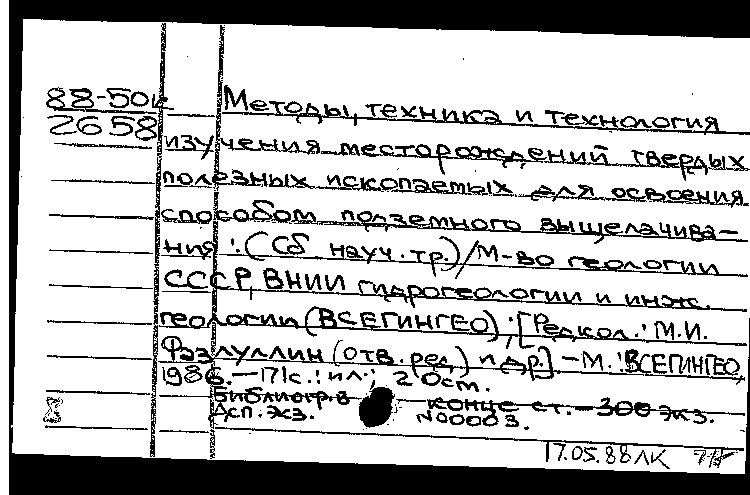 88-50к
2658
Методы, техника и технология
изучения месторождений твердых
полезных ископаемых для освоения
способом подземного выщелачива-
ния : (Сб. науч. тр.) / М-во геологии
СССР, ВНИИ гидрогеологии и инж.
геологии (ВСЕГИНГЕО) ; [Редкол.: М.И.
Фазлуллин (отв. ред.) и др.]. - М. : ВСЕГИНГЕО,
1986. - 171с. : ил. ; 20см.
Библиогр. в конце ст. - 300 экз.
Дсп. Экз. N00003.
8
17.05.88 ЛК